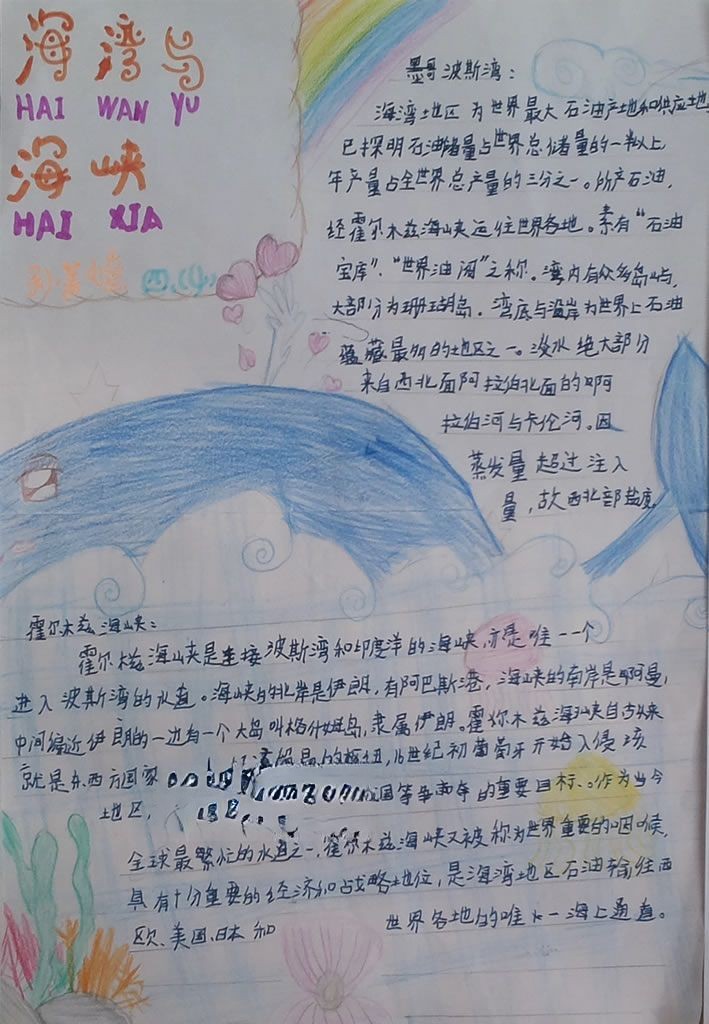 海湾与
HAI WAN YU
海峡
HAI XIA
四.(4)
墨哥 波斯湾：
海湾地区为世界最大石油产地和供应地
已探明石油储量占世界总储量的一半以上,
年产量占全世界总产量的三分之一。所产石油,
经霍尔木兹海峡运往世界各地。素有“石油
宝库”、“世界油阀”之称。湾内有众多岛屿,
大部分为珊瑚岛。湾底与沿岸为世界上石油
蕴藏最多的地区之一。淡水绝大部分
来自西北面阿拉伯北面的啊
拉伯河与卡伦河。因
蒸发量超过注入
量，故西北部盐度
霍尔木兹海峡：
霍尔木兹海峡是连接波斯湾和印度洋的海峡,亦是唯一一个
进入波斯湾的水道。海峡的北岸是伊朗,有阿巴斯港,海峡的南岸是啊曼,
中间偏近伊朗的一边有一个大岛叫格什姆岛,隶属伊朗。霍尔木兹海峡自古以来
就是东西方国家 的枢纽,16世纪初葡萄牙开始入侵该
地区, 国等争夺的重要目标。作为当今
全球最繁忙的水道之一,霍尔木兹海峡又被称为世界重要的咽喉,
具有十分重要的经济和战略地位,是海湾地区石油输往西
欧、美国、日本和 世界各地的唯一海上通道。